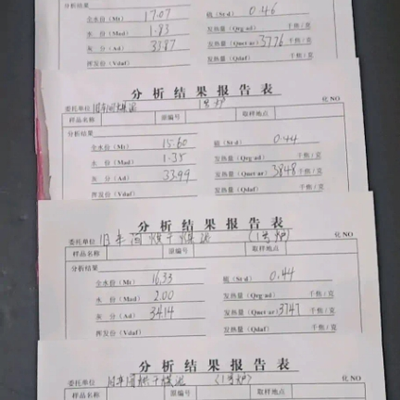 分析结果：
全水份（Mt） 17.07 硫（St·d） 0.46
水 份（Mad） 1.83 发热量（Qrg ad） 千焦/克
灰 分（Ad） 33.87 发热量（Qnet ar） 3776 千焦/克
挥发份（Vdaf） 发热量（Qdaf） 千焦/克
分 析 结 果 报 告 表
委托单位 旧车间煤泥 1号炉 化 NO
样品名称 原编号 取样地点
分析结果：
全水份（Mt） 15.60 硫（St·d） 0.44
水 份（Mad） 1.35 发热量（Qrg ad） 千焦/克
灰 分（Ad） 33.99 发热量（Qnet ar） 3848 千焦/克
挥发份（Vdaf） 发热量（Qdaf） 千焦/克
分 析 结 果 报 告 表
委托单位 旧车间烘干煤泥 （1号炉） 化 NO
样品名称 原编号 取样地点
分析结果：
全水份（Mt） 16.33 硫（St·d） 0.44
水 份（Mad） 2.00 发热量（Qrg ad） 千焦/克
灰 分（Ad） 34.14 发热量（Qnet ar） 3747 千焦/克
挥发份（Vdaf） 发热量（Qdaf） 千焦/克
分 析 结 果 报 告 表
委托单位 旧车间烘干煤泥 （1号炉） 化 NO
样品名称 原编号 取样地点